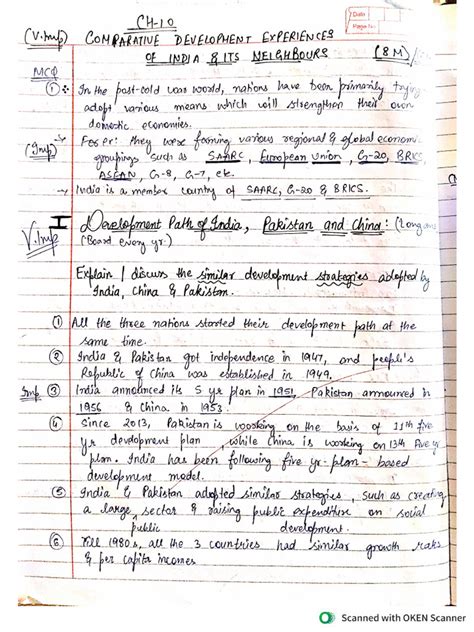 Date
Page No.
CH-10
(V.Imp) COMPARATIVE DEVELOPMENT EXPERIENCES
OF INDIA & ITS NEIGHBOURS (8M)
MCQ
① In the post-cold war world, nations have been primarily trying
adopt various means which will strengthen their own
domestic economies.
(Imp) For ex: they were forming various regional & global economic
groupings such as SAARC, European Union, G-20, BRICS,
ASEAN, G-8, G-7, etc.
India is a member country of SAARC, G-20 & BRICS.
V.Imp I Development Path of India, Pakistan and China: (Long ans
(Board every yr.)
Explain / discuss the similar development strategies adopted by
India, China & Pakistan.
① All the three nations started their development path at the
same time.
② India & Pakistan got independence in 1947, and people's
Republic of China was established in 1949.
Imp ③ India announced its 5 yr plan in 1951, Pakistan announced in
1956 & China in 1953.
④ Since 2013, Pakistan is working on the basis of 11th five
yr development plan, while China is working on 13th five yr
plan. India has been following five yr-plan-based
development model.
⑤ India & Pakistan adopted similar strategies, such as creating
a large public sector & raising public expenditure on social
development.
⑥ Till 1980s, all the 3 countries had similar growth rates
& per capita incomes
Scanned with OKEN Scanner